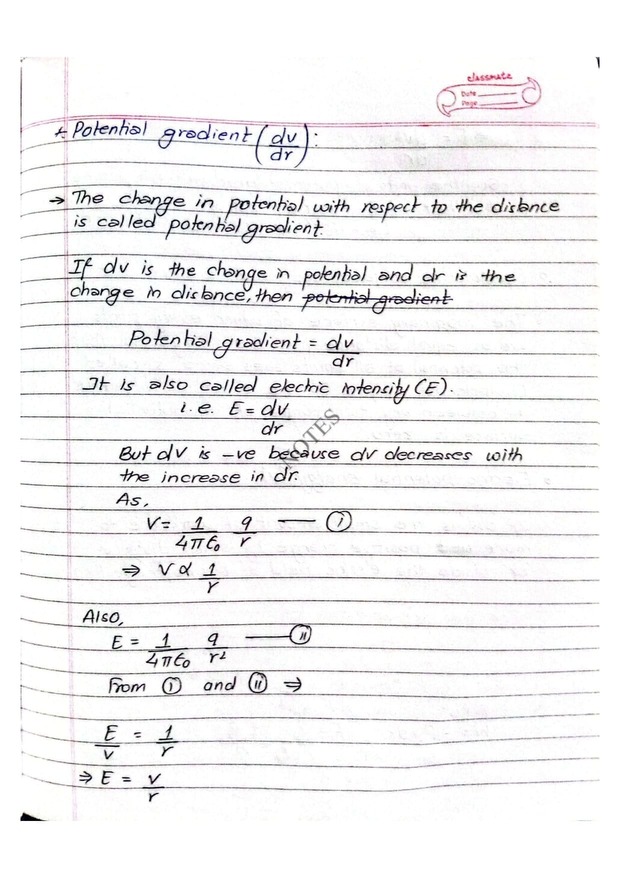 classmate
Date
Page
* Potential gradient (dv/dr):
→ The change in potential with respect to the distance
is called potential gradient.
If dv is the change in potential and dr is the
change in distance, then ~~potential gradient~~
Potential gradient = dv/dr
It is also called electric intensity (E).
i.e. E = dv/dr
NOTES
But dv is -ve because dv decreases with
the increase in dr.
As,
V = 1/4πϵ₀ q/r —— (i)
⇒ V ∝ 1/r
Also,
E = 1/4πϵ₀ q/r² —— (ii)
From (i) and (ii) ⇒
E/v = 1/r
⇒ E = v/r